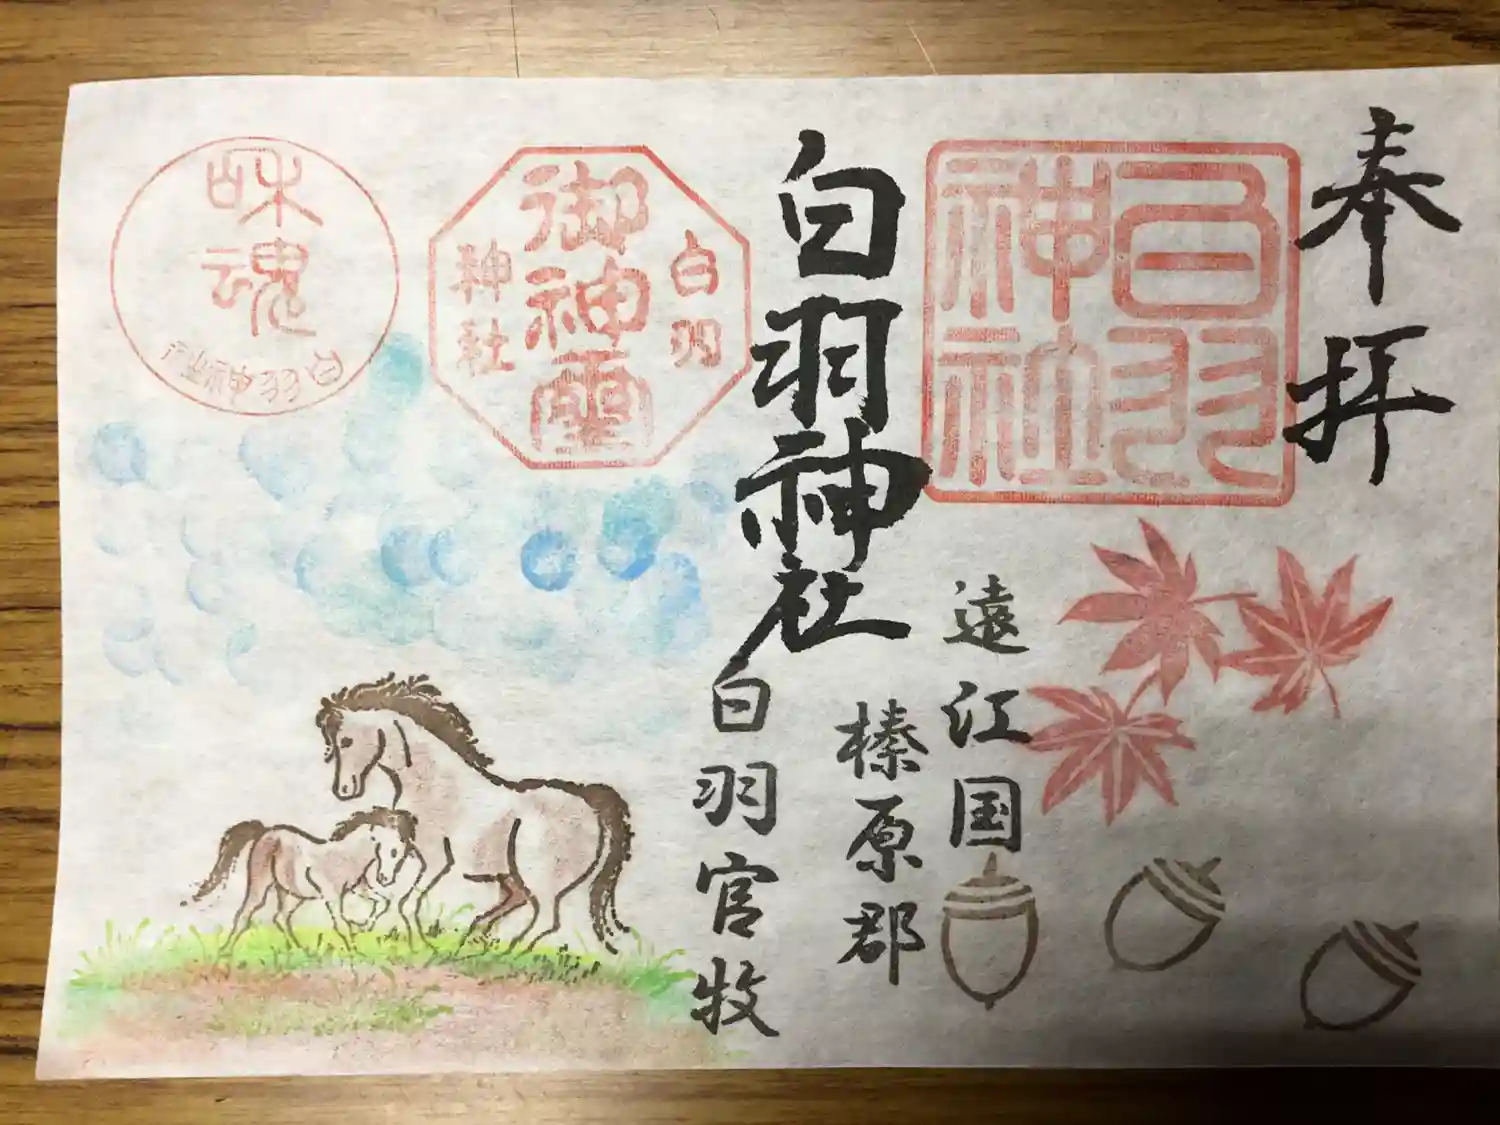 奉拝
白羽
神社
遠江国
榛原郡
白羽神社
白羽官牧
白羽
御神璽
神社
魂
白羽神社